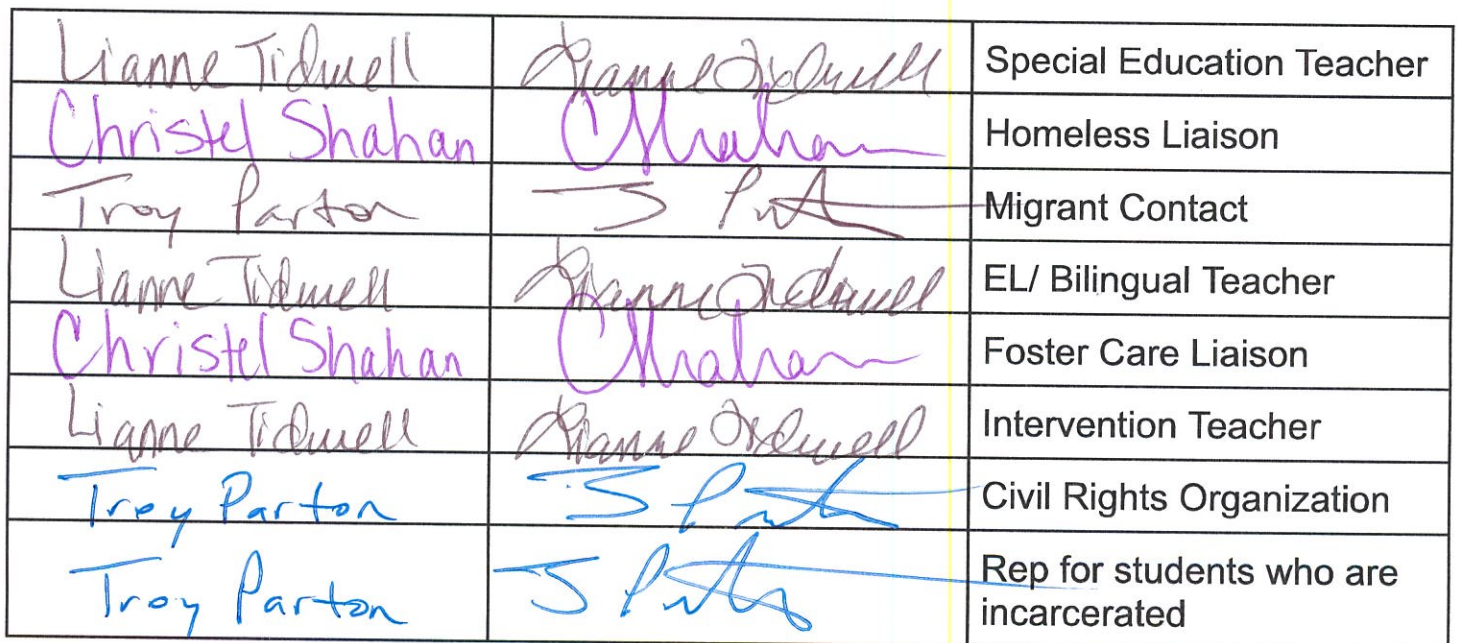 Lianne Tidwell Lianne Tidwell Special Education Teacher
Christel Shahan CShahan Homeless Liaison
Troy Parton Migrant Contact
Lianne Tidwell Lianne Tidwell EL/ Bilingual Teacher
Christel Shahan CShahan Foster Care Liaison
Lianne Tidwell Lianne Tidwell Intervention Teacher
Troy Parton Civil Rights Organization
Troy Parton Rep for students who are
incarcerated